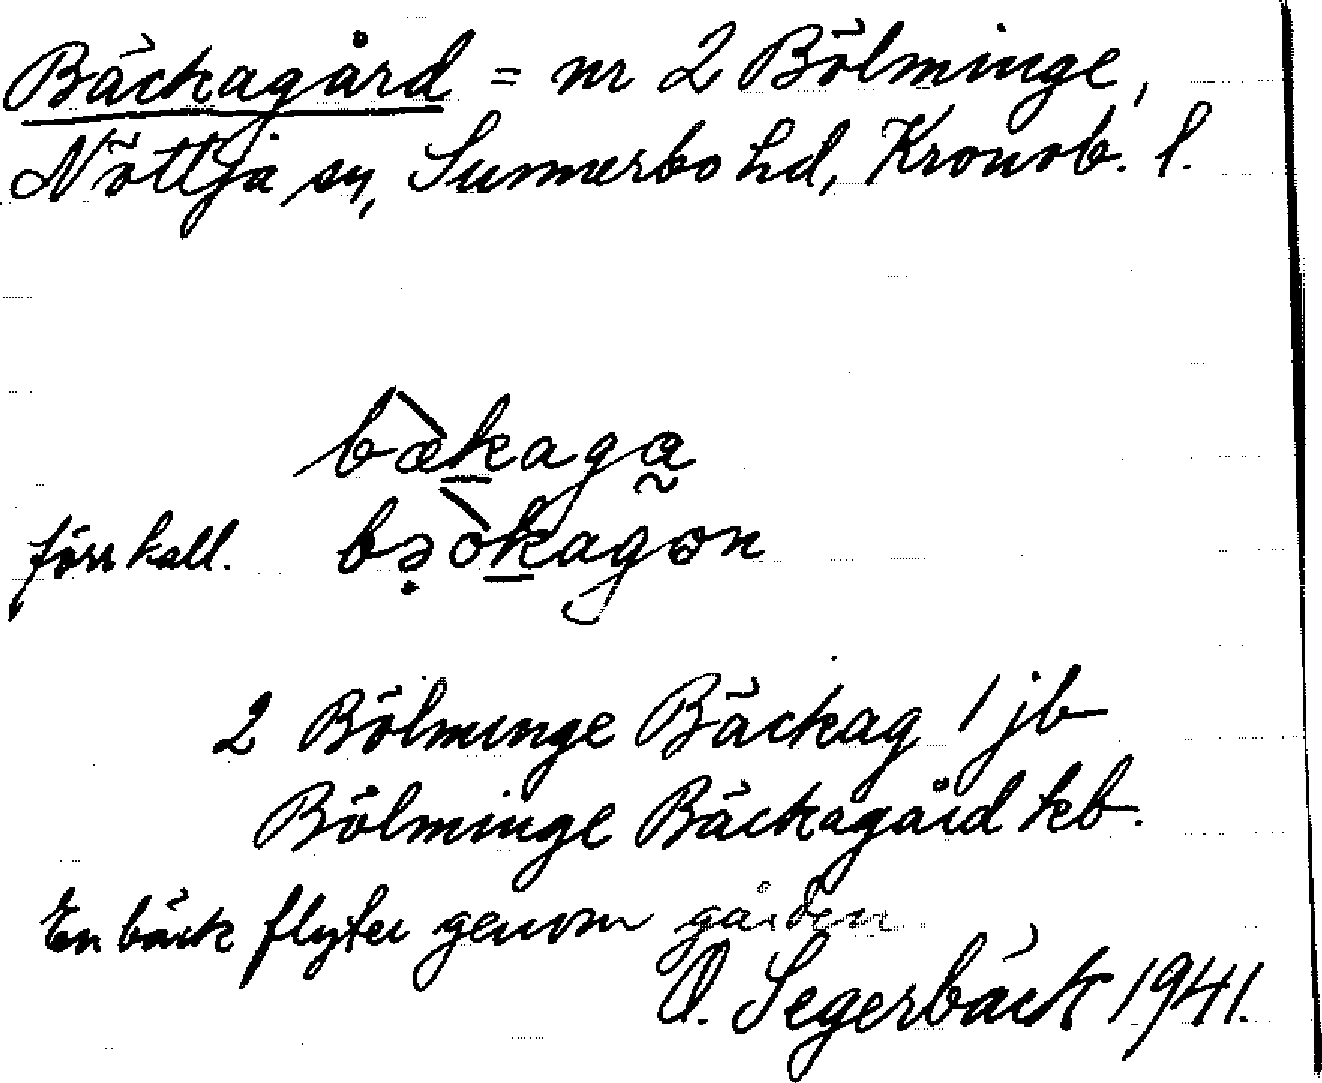 Bäckagård = nr 2 Bölminge,
Nöttja sn, Sunnerbo hd, Kronob. l.
bæ̀kaga
förr kall. bəòkagən
2 Bölminge Bäckag 1 jb
Bölminge Bäckagård kb.
En bäck flyter genom gården
O. Segerbäck 1941.